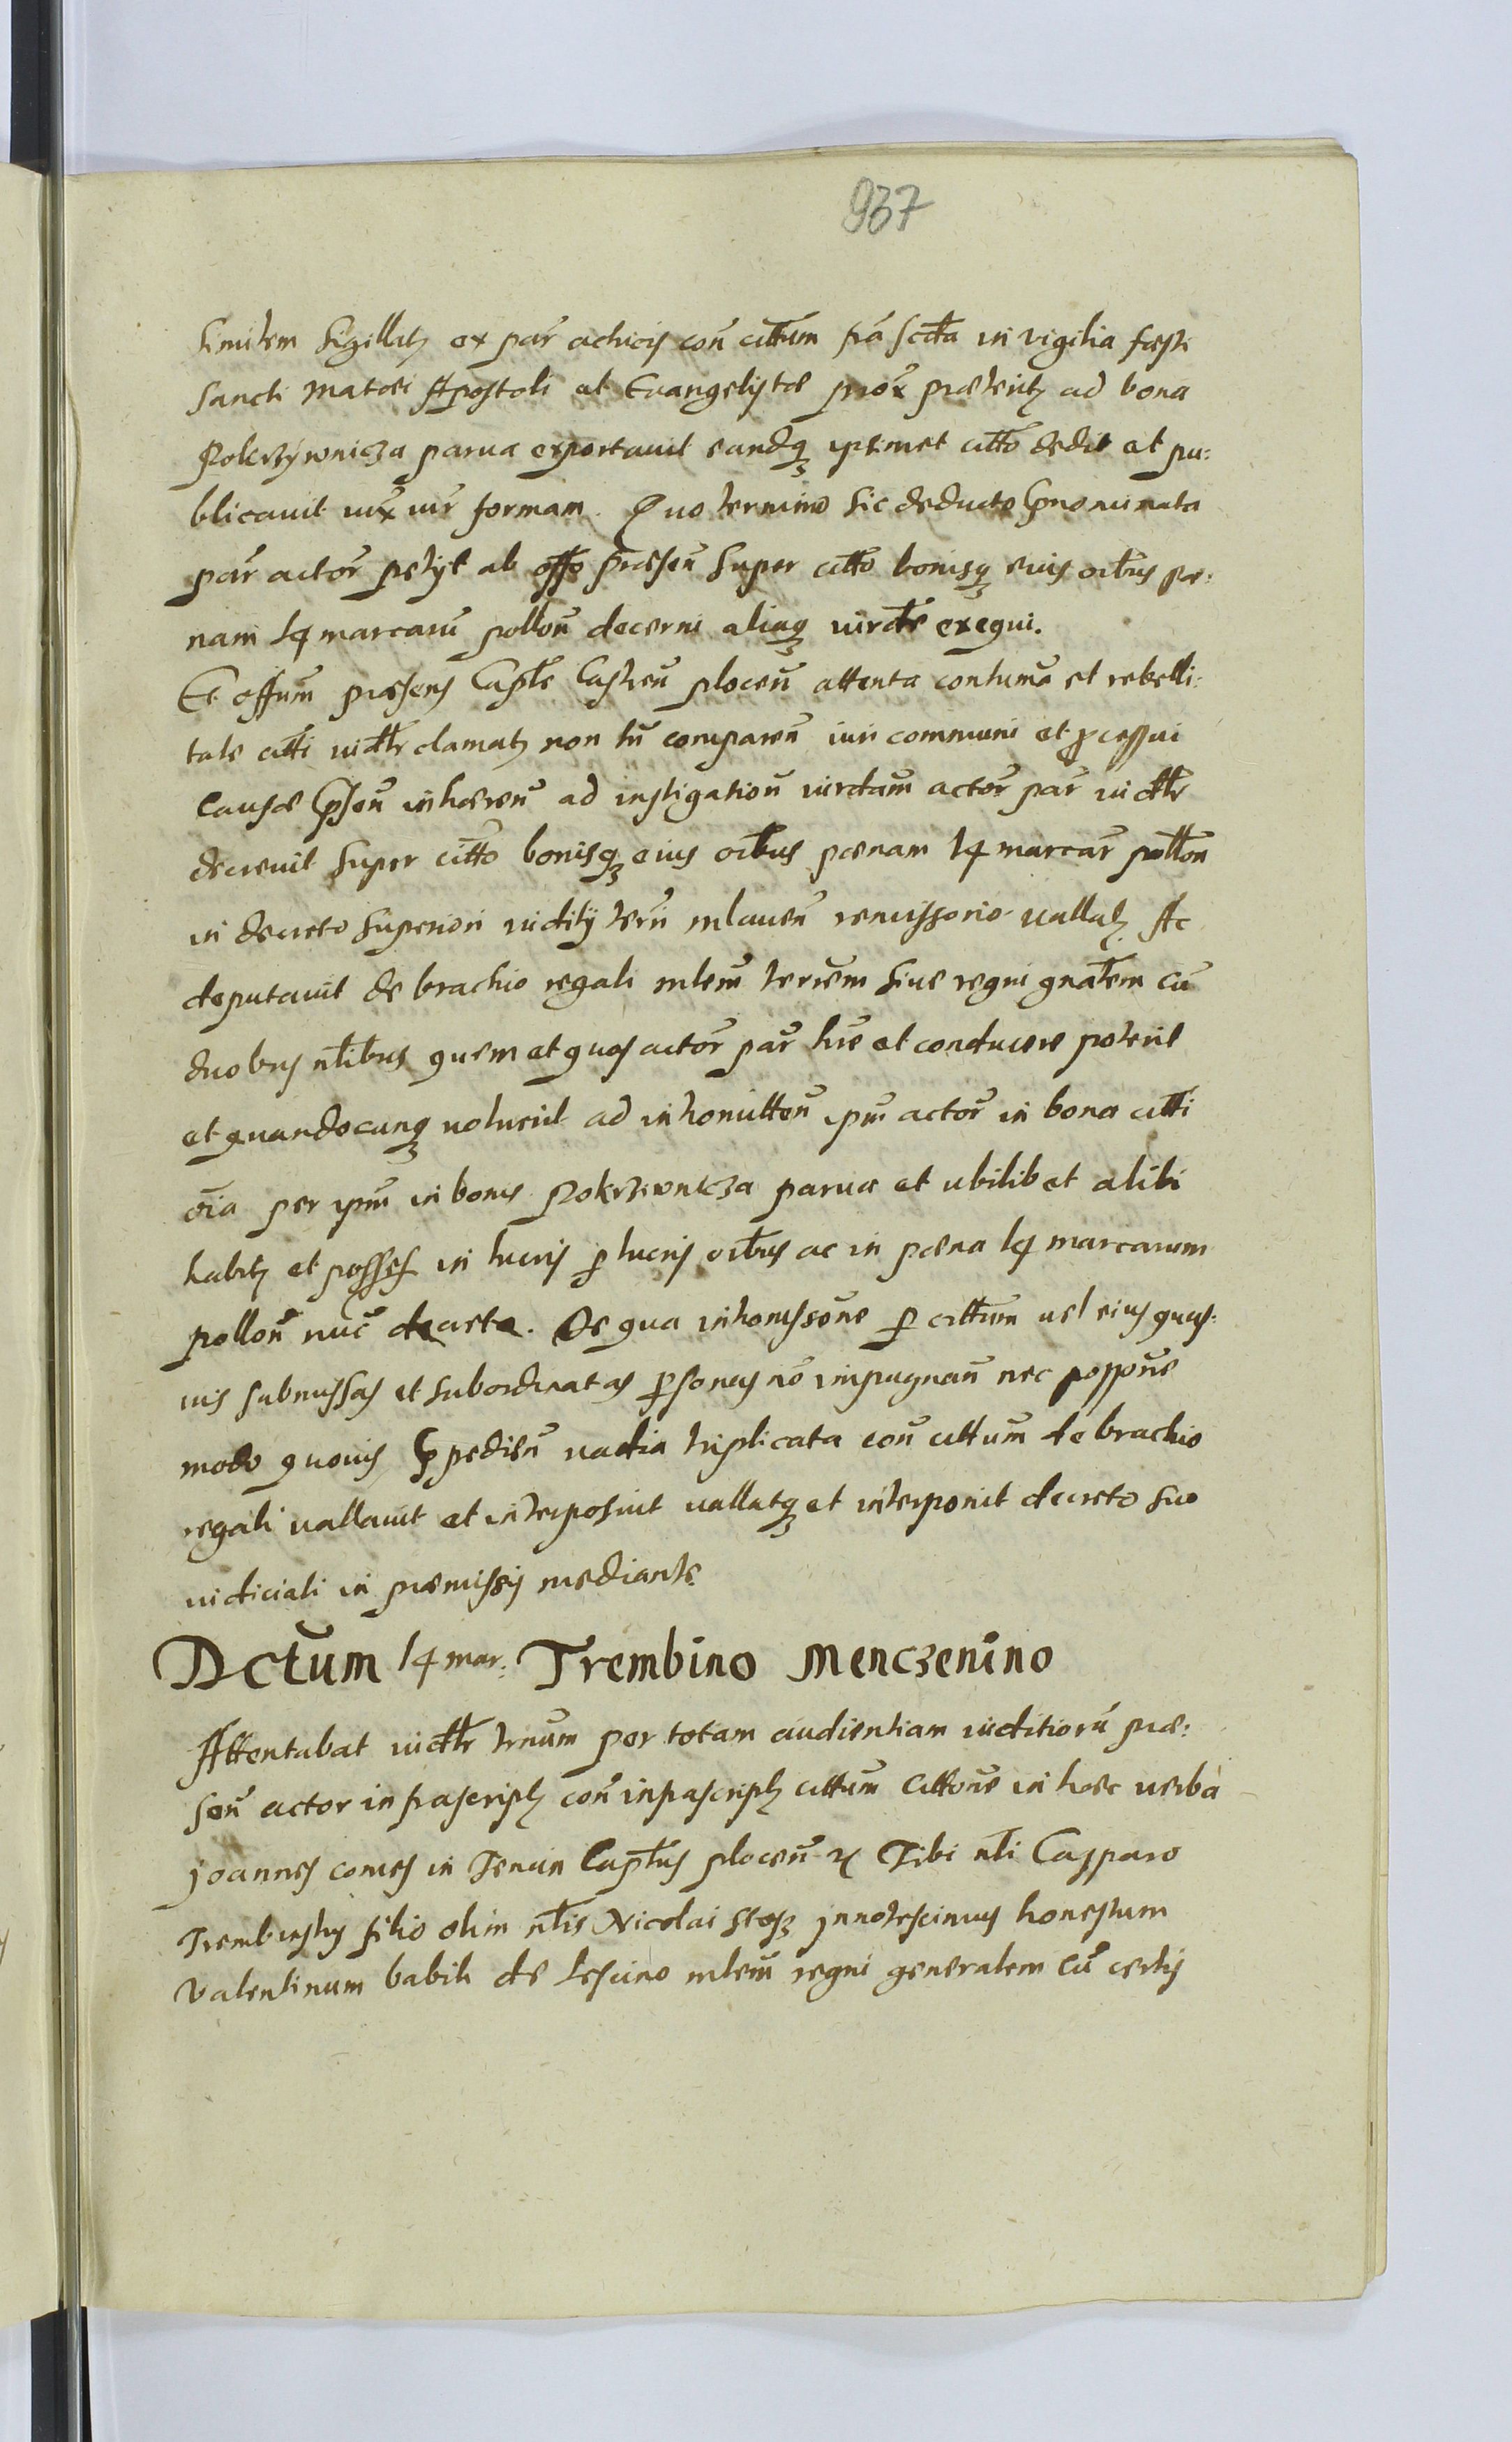 937
similem sigillatȝ ex par̃ actricis con̄ cittum fra scta in vigilia fæsti
sancti Matæi Apostoli et Euangelistæ prox̃ præteritȝ ad bona
Pokrzÿwnicza parua exportauit eandqȝ ipsimet citto dedit et pu:
blicauit iux̃ iur̃ formam. Quo termino sic deducto prnominata
par̃ actor̃ petÿt ab offo præsen̄ super citto bonisqȝ eius oibus pæ:
nam 14 marcarū pollon̄ decerni aliaqȝ iurdte exequi.
Et offum præsens Captle Castren̄ plocen̄ attenta contuma et rebelli:
tate citti iudtlr clamatȝ non tn̄ comparen̄ iuri communi et processui
causæ prsen̄ inhæren̄ ad instigation̄ iurdtam actor̃ par̃ iudtlr
decreuit super citto bonisqȝ eius oibus pænam 14 marcar̃ pollon̄
in decreto superiori iuditij terrī mlauen̄ remissorio vallatȝ Ac
deputauit de brachio regali mlem̄ terrem siue regni gnalem cū
duobus nlibus quem et quos actor̃ par̃ hre et conducere poterit
et quandocunqȝ voluerit ad intromitten̄ ipm̄ actor̃ in bona citti
oīa per ipm̄ in bonis Pokrziwnicza parua et ubilibet alibi
habitȝ et posses in lucris p lucris oibus ac in pæna 14 marcarum
pollon̄ nūc decreta. De qua intromissone p cittum vel eius quas:
uis submissas et subordinatas psonas nō impugnan̄ nec posponē
modo quouis prpedien̄ vadia triplicata con̄ cittum de brachio
regali vallauit et interposuit vallatqȝ et interponit decreto suo
iudiciali in præmissis mediante
Dctum 14 mar: Trembino Menczenino
Attentabat iudtlr trnum per totam audientiam iuditiorū præ:
sen̄ actor infrascriptȝ con̄ infrascriptȝ cittum cittone in hæc verba
Joannes comes in Tenczin Captus plocen̄ &c Tibi nli Casparo
Trembinsky filio olim nlis Nicolai steqȝ Jnnotescimus honestum
Valentinum babik de Lescino mlem̄ regni generalem cū certis